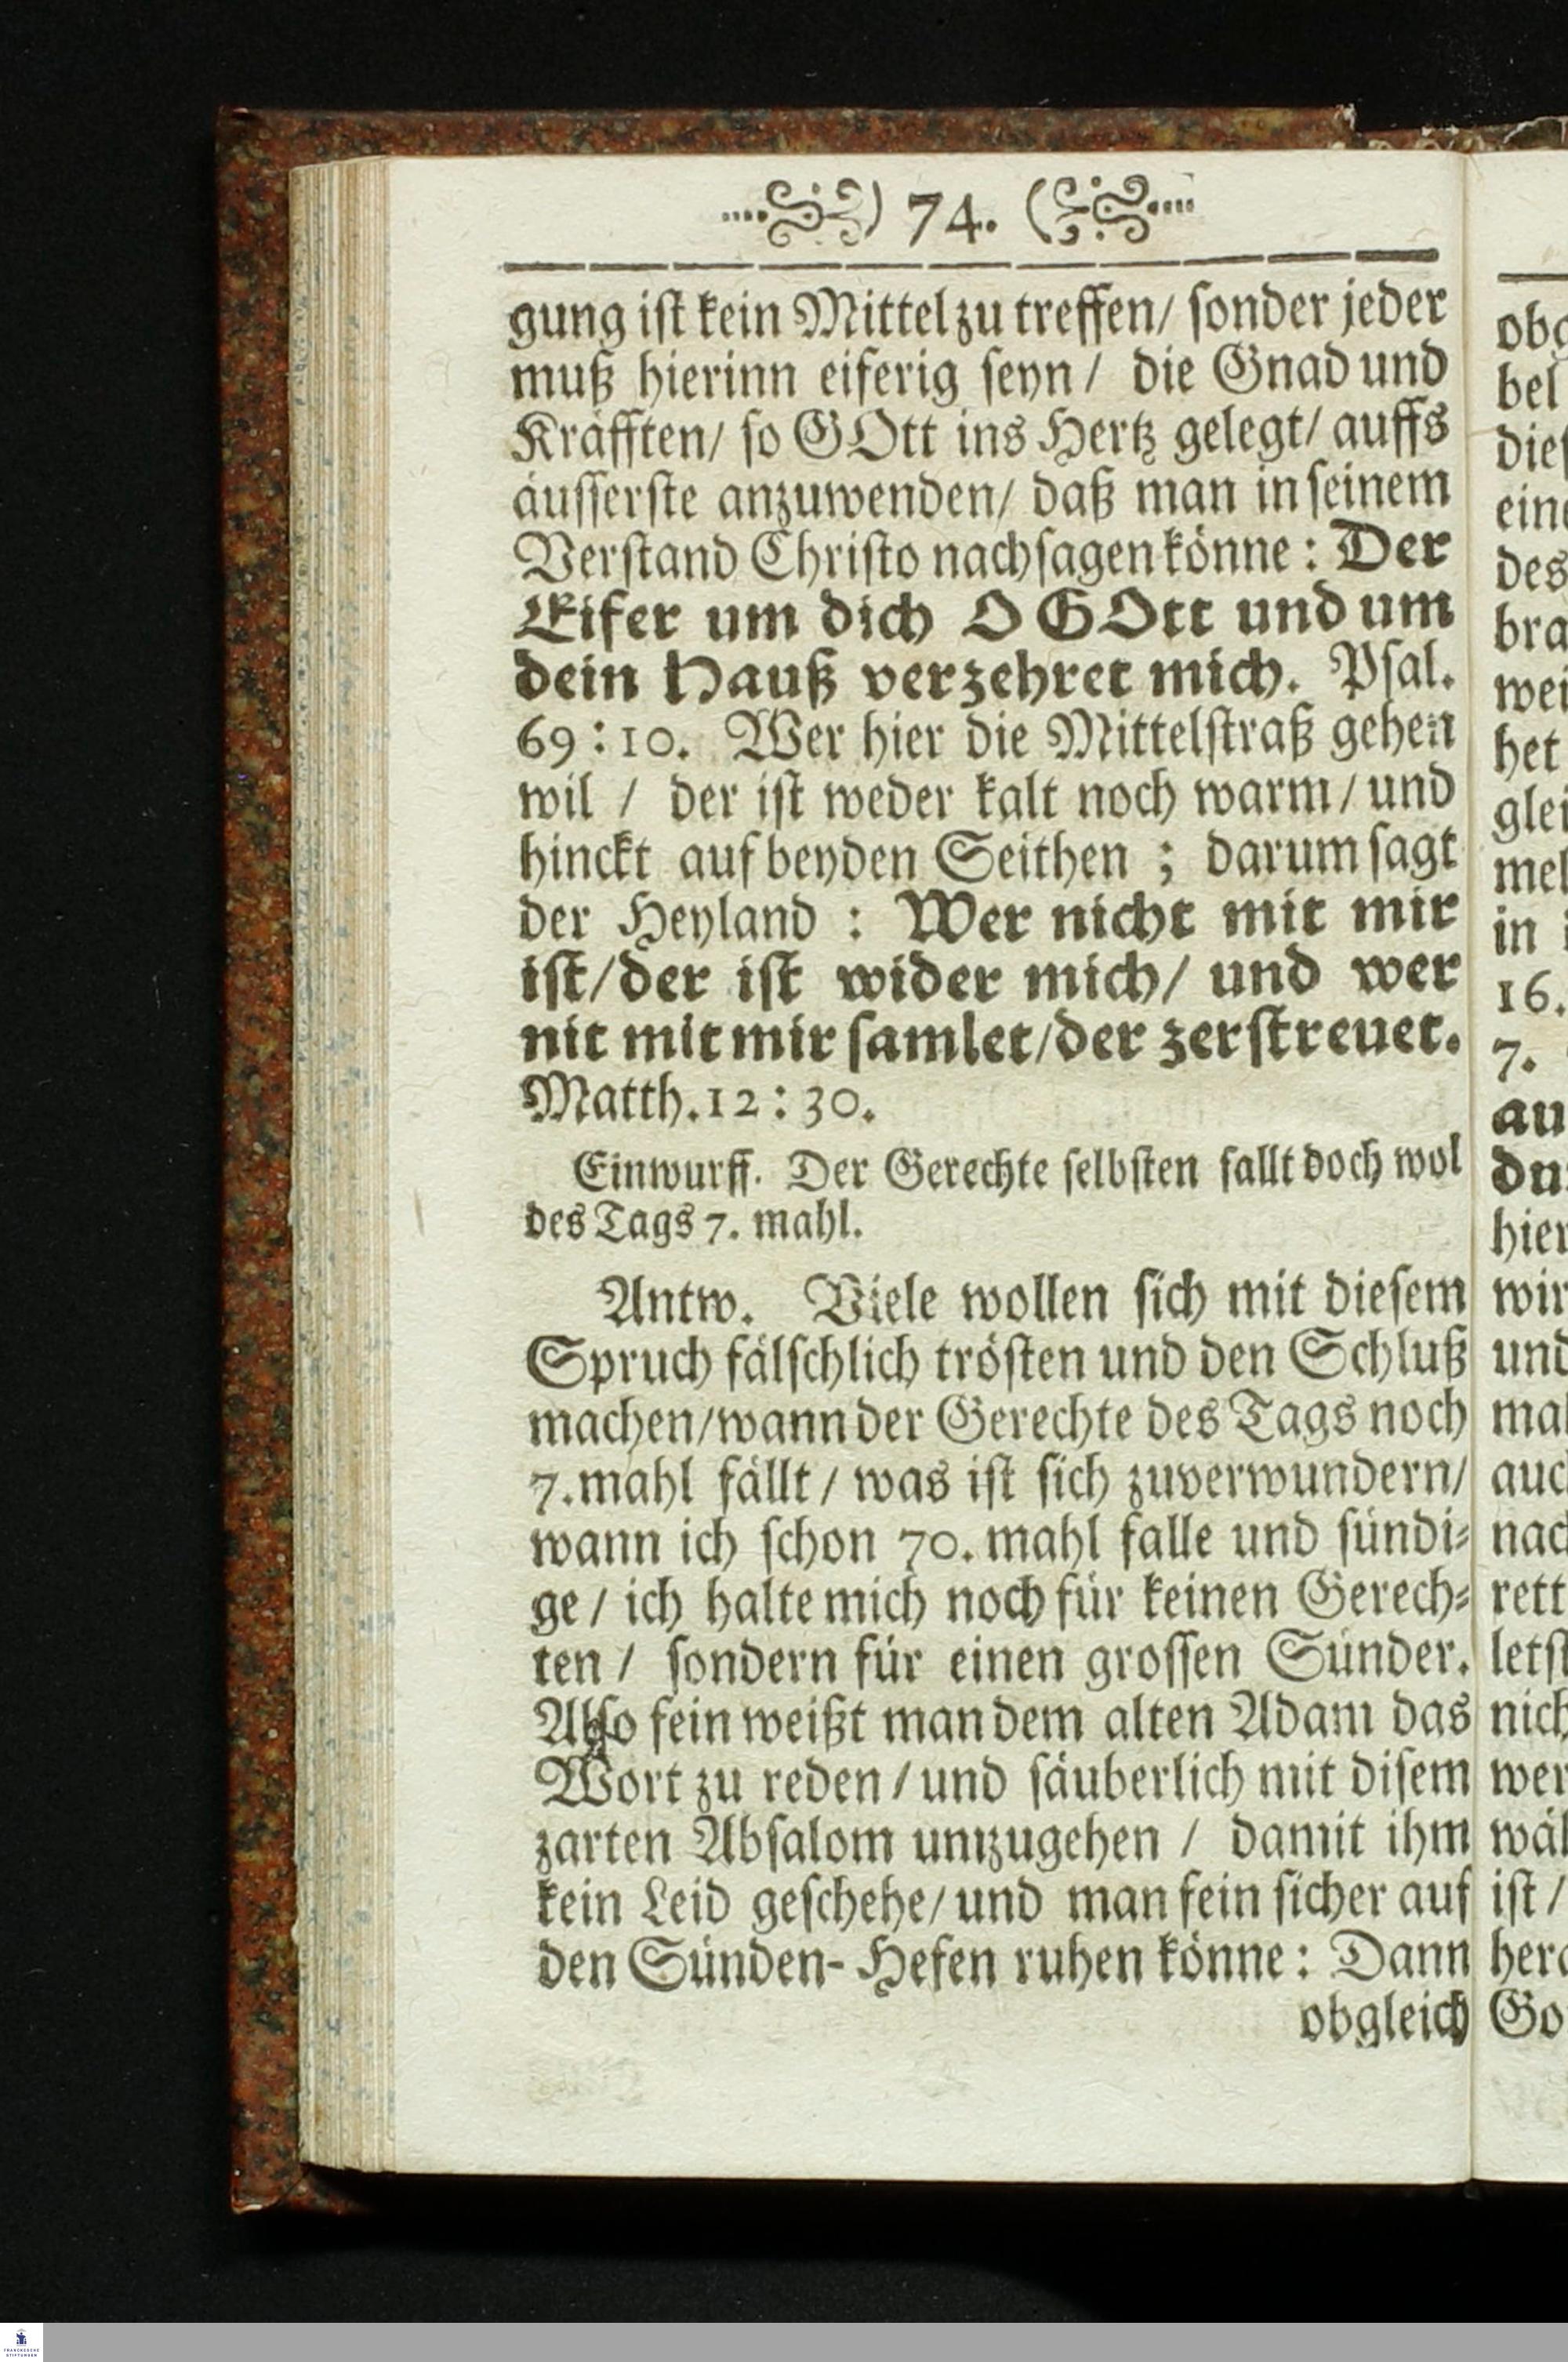 ) 74. (
gung ist kein Mittel zu treffen/ sonder jeder
muß hierinn eiferig seyn / die Gnad und
Kräfften/ so GOtt ins Hertz gelegt/ auffs
äusserste anzuwenden/ daß man in seinem
Verstand Christo nachsagen könne: Der
Eifer um dich O GOtt und um
dein Hauß verzehret mich. Psal.
69:10. Wer hier die Mittelstraß gehen
wil / der ist weder kalt noch warm/ und
hinckt auf beyden Seithen ; darum sagt
der Heyland : Wer nicht mit mir
ist/der ist wider mich/ und wer
nit mit mir samlet/der zerstreuet.
Matth.12:30.
Einwurff. Der Gerechte selbsten fallt doch wol
des Tags 7. mahl.
Antw. Viele wollen sich mit diesem
Spruch fälschlich trösten und den Schluß
machen/wann der Gerechte des Tags noch
7.mahl fällt / was ist sich zuverwundern/
wann ich schon 70. mahl falle und sündi⸗
ge / ich halte mich noch für keinen Gerech⸗
ten / sondern für einen grossen Sünder.
Also fein weißt man dem alten Adam das
Wort zu reden / und säuberlich mit disem
zarten Absalom umzugehen / damit ihm
kein Leid geschehe/ und man fein sicher auf
den Sünden- Hefen ruhen könne: Dann
obgleich
obg
bel
dies
eine
des
bra
wei
het
glei
mel
in
16.
7.
au
du
hier
wir
und
mal
auc
nac
rett
letst
nich
wer
wäl
ist /
hera
Go
FRANCKESCHE
STIFTUNGEN